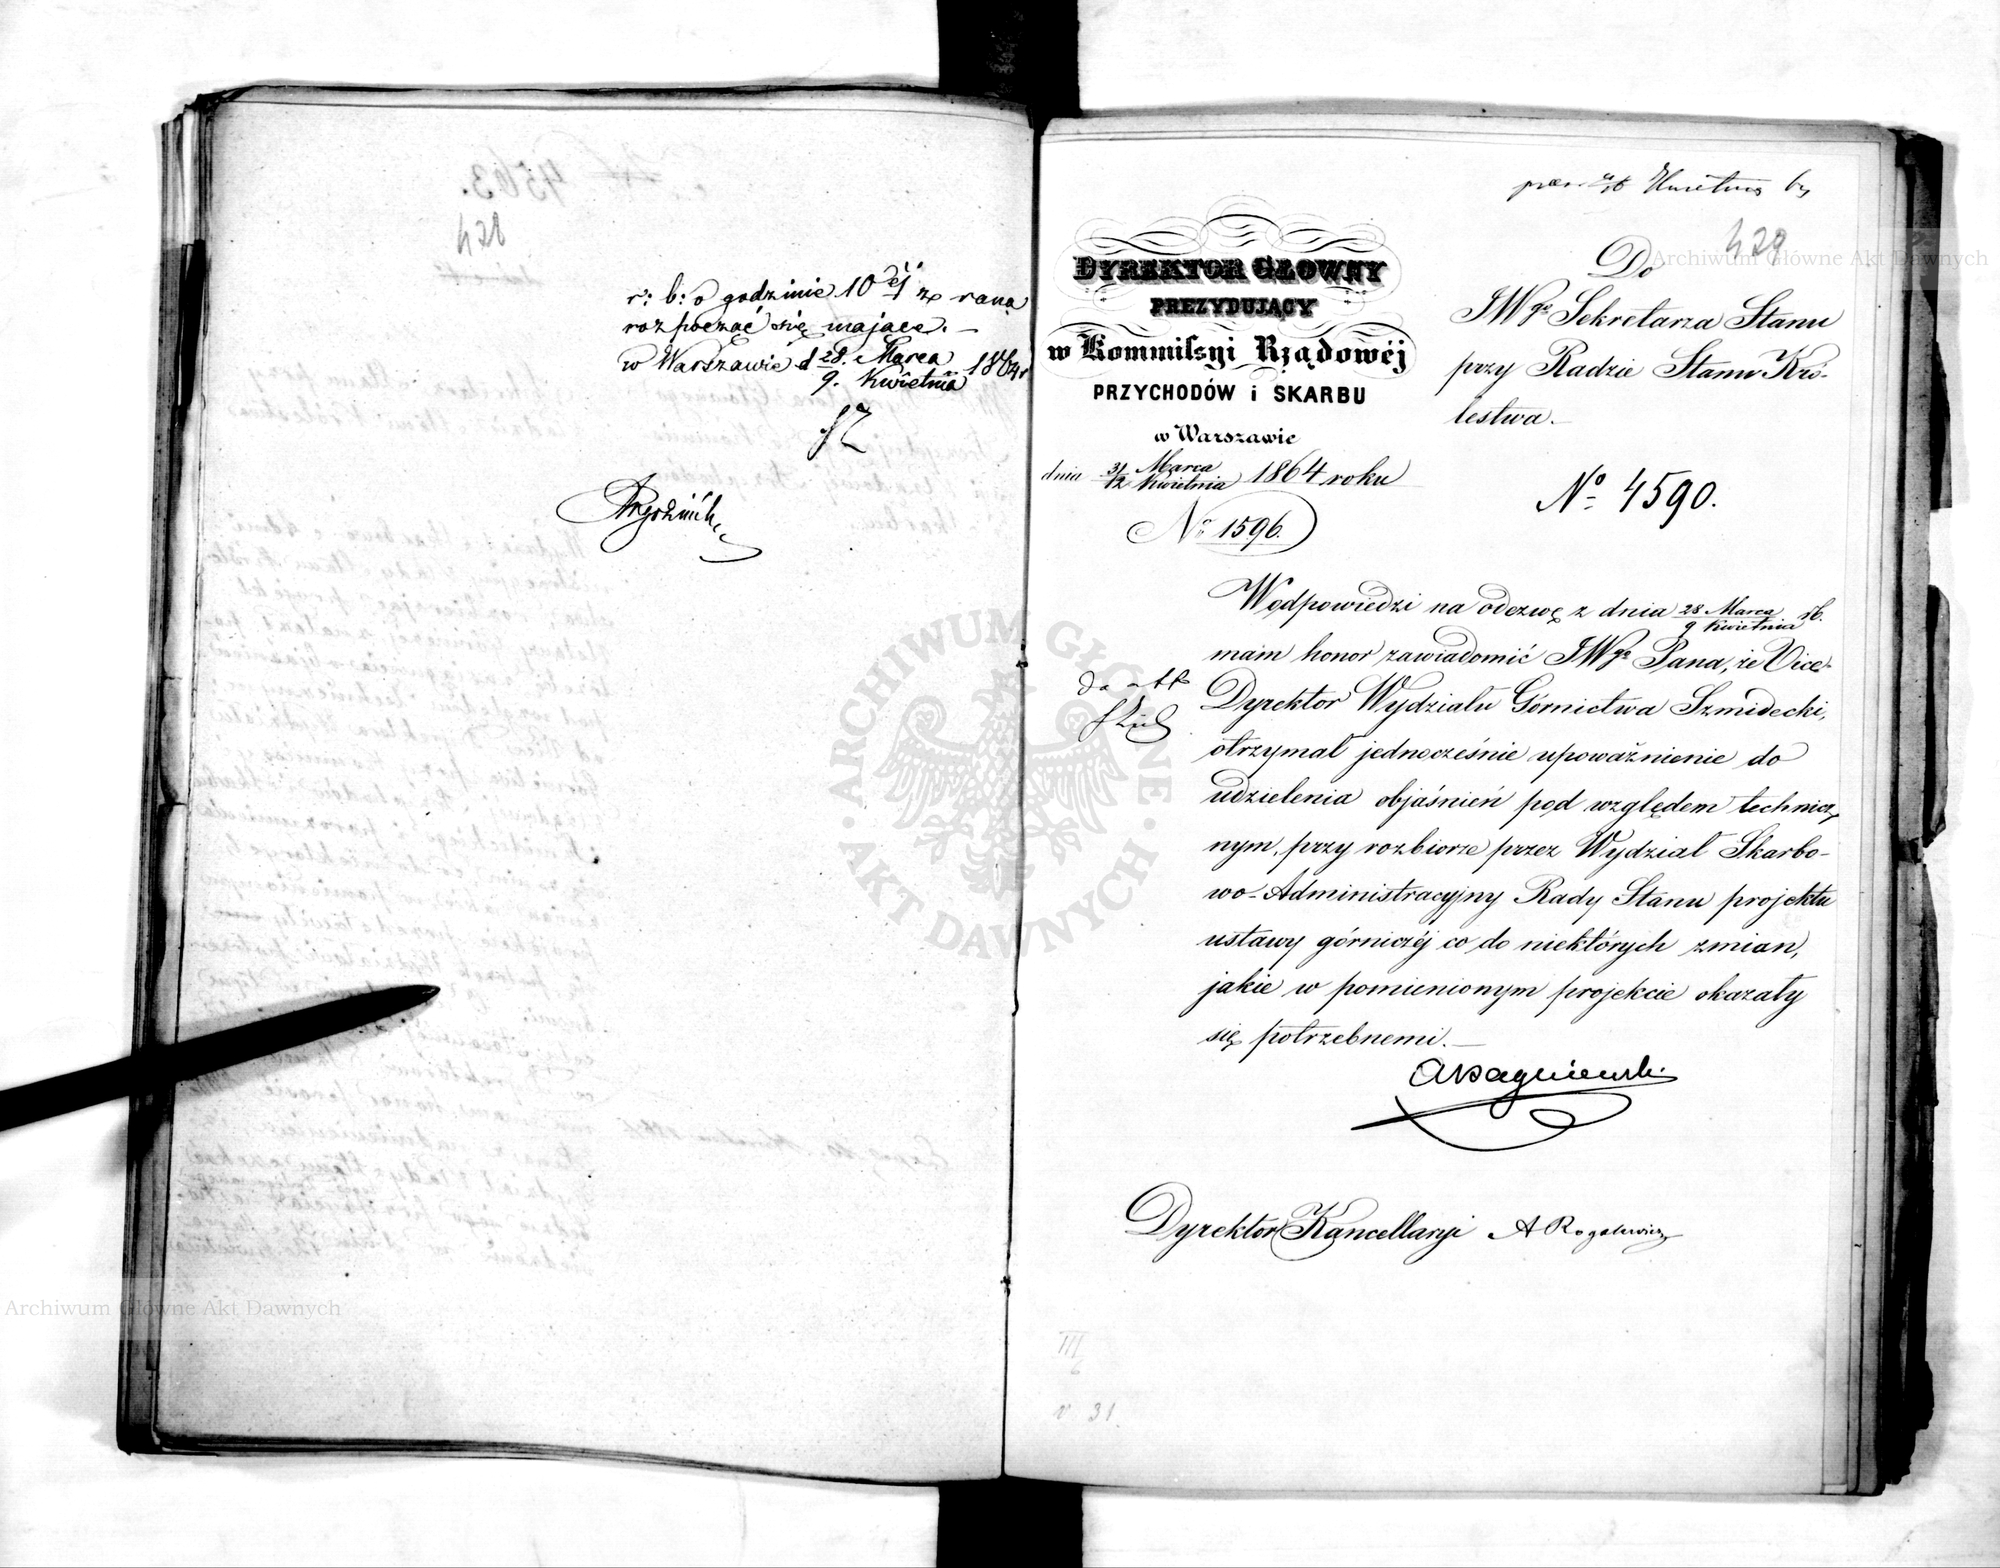 r: b: o godzinie 10ej z rana
rozpocząć się mające.—
w Warszawie d 28. Marca / 9. Kwietnia 1864 r
Kwietnia
429
DYREKTOR GŁOWNY
PREZYDUJĄCY
w Kommissyi Rządowéj
PRZYCHODÓW i SKARBU
w Warszawie
dnia 31 Marca / 12 Kwietnia 1864 roku
No 1596.
Do
JWgo Sekretarza Stanu
przy Radzie Stanu Kró-
lestwa.—
No 4590.
W odpowiedzi na odezwę z dnia 28 Marca / 9 Kwietnia rb.
mam honor zawiadomić JWgo Pana, że Vice-
Dyrektor Wydziału Górnictwa Szmidecki,
otrzymał jednocześnie upoważnienie do
udzielenia objaśnień pod względem technicz-
nym, przy rozbiorze przez Wydział Skarbo-
wo-Administracyjny Rady Stanu projektu
ustawy górniczéj co do niektórych zmian,
jakie w pomienionym projekcie okazały
się potrzebnemi.—
do akt
Dyrektor Kancellaryi
III
6
v. 31.
ARCHIWUM GŁÓWNE
AKT DAWNYCH
Archiwum Główne Akt Dawnych
Archiwum Główne Akt Dawnych